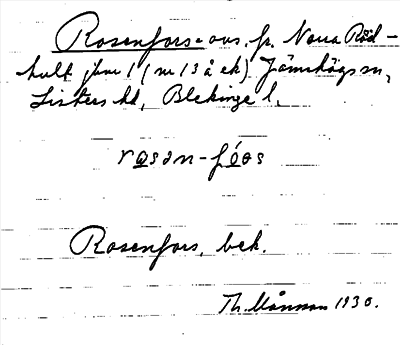 Rosenfors = avs. fr. Norra Röd-
hult jbnr 1 (nr 13 å ek) Jämshögs sn,
Listers hd, Blekinge l.
rosən-fóos
Rosenfors, bek.
Th. Månsson 1930.